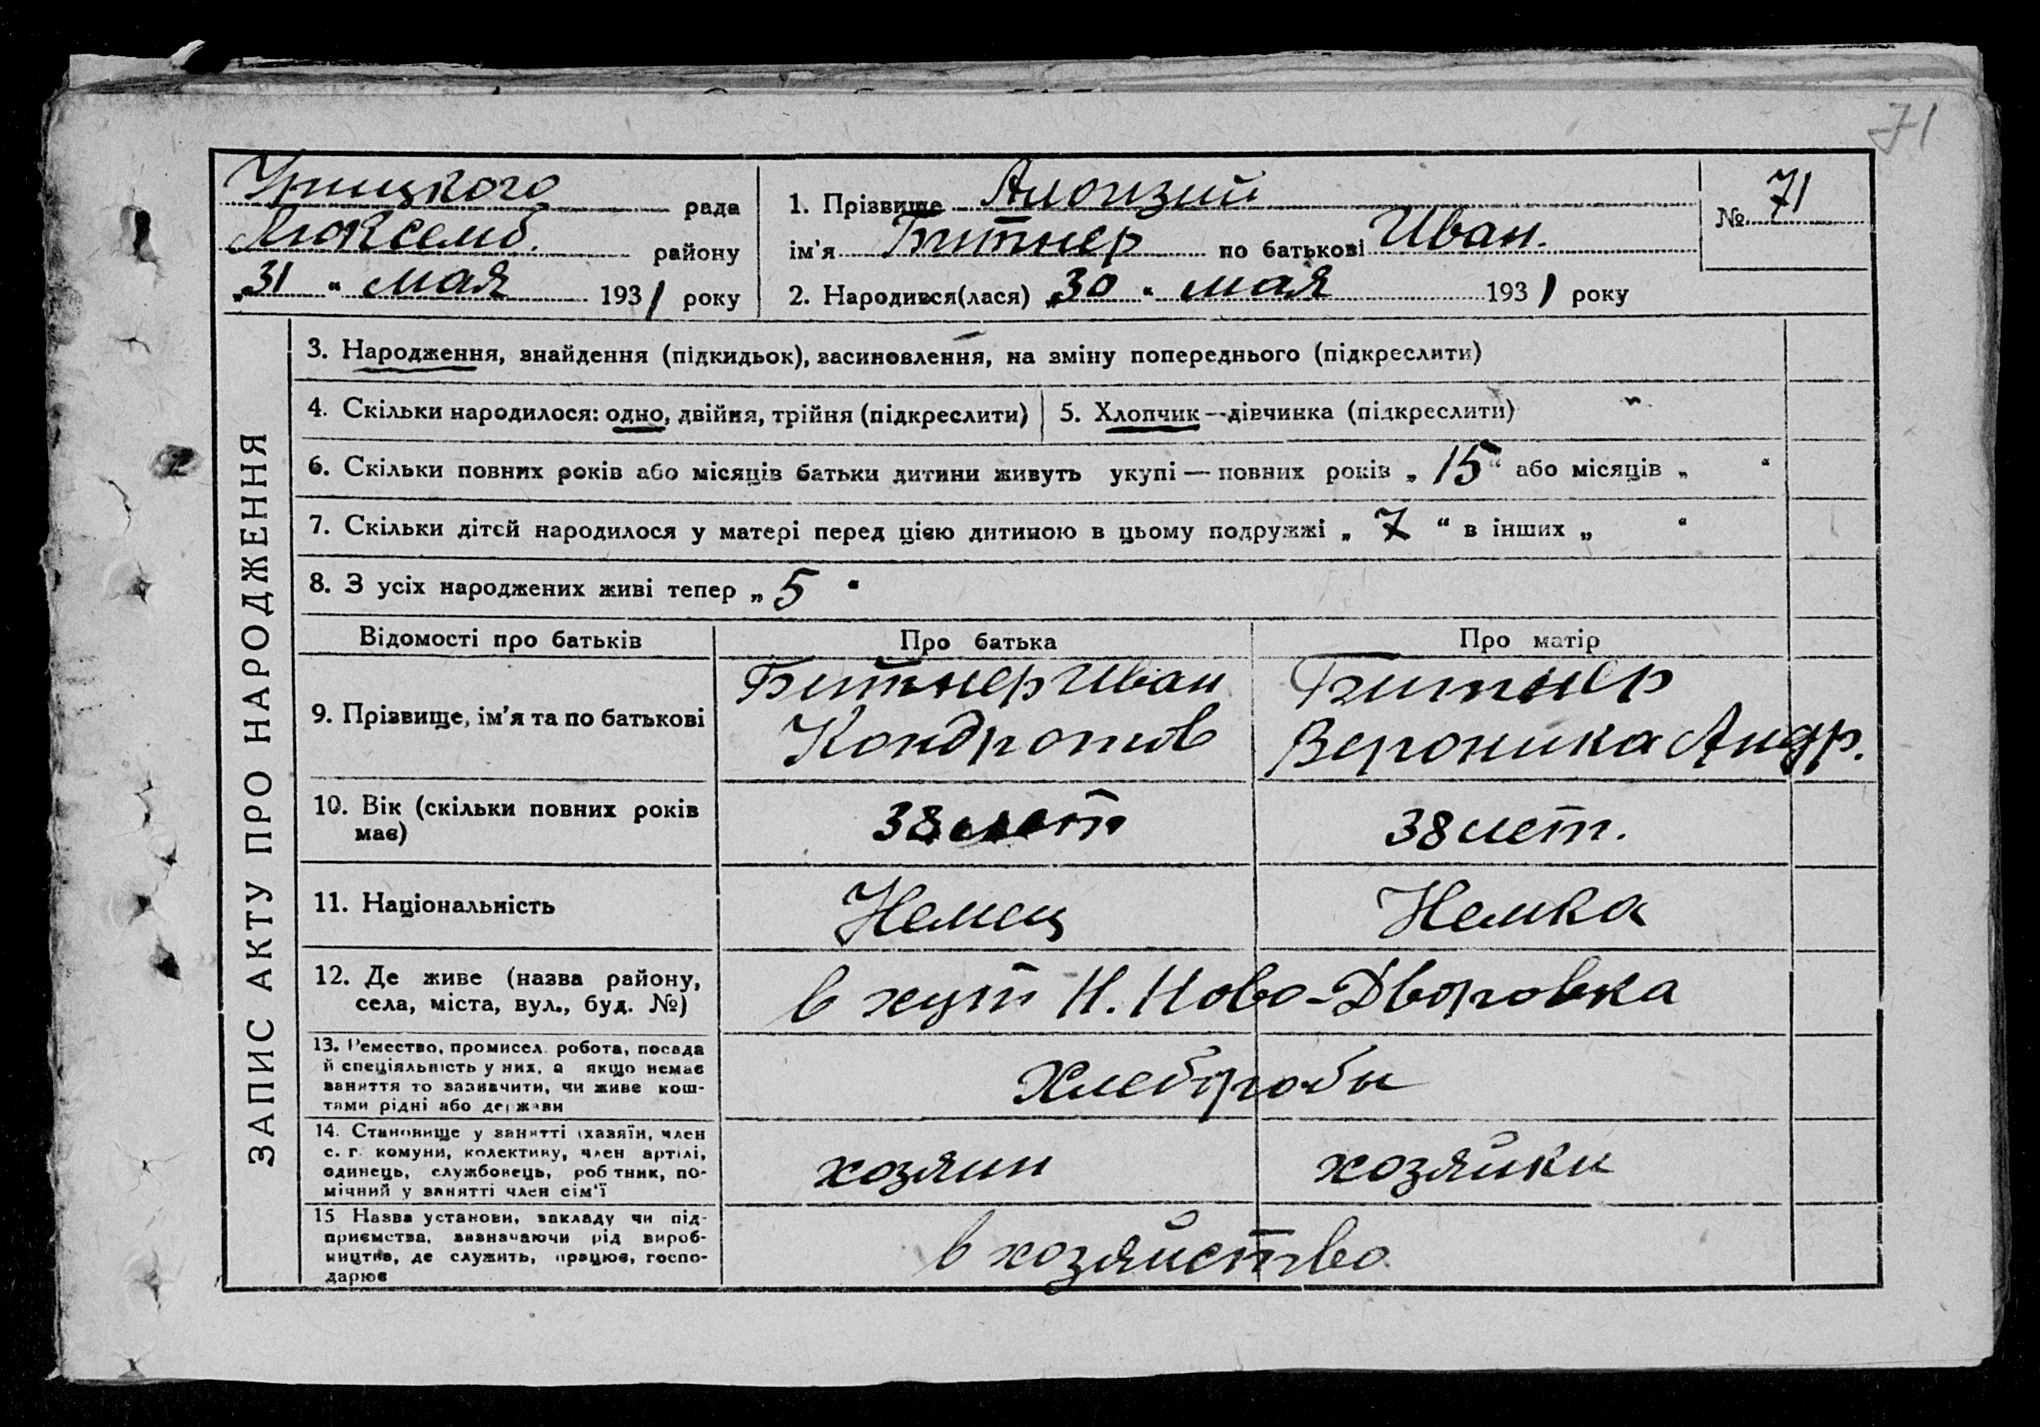 71
Урицкого рада
Люксемб. району
„31“ мая 1931 року
1. Прізвище Алоизий
ім'я Битнер по батькові Иван.
2. Народився(лася) „30“ мая 1931 року
№ 71
ЗАПИС АКТУ ПРО НАРОДЖЕННЯ
3. Народження, знайдення (підкидьок), засиновлення, на зміну попереднього (підкреслити)
4. Скільки народилося: одно, двійня, трійня (підкреслити) 5. Хлопчик—дівчинка (підкреслити)
6. Скільки повних років або місяців батьки дитини живуть укупі — повних років „15“ або місяців „ “
7. Скільки дітей народилося у матері перед цією дитиною в цьому подружжі „7“ в інших „ “
8. З усіх народжених живі тепер „5“
Відомості про батьків Про батька Про матір
9. Прізвище, ім'я та по батькові
Битнер Иван
Кондратов
Битнер
Вероника Андр.
10. Вік (скільки повних років
має)
38 лет
38 лет.
11. Національність Немец Немка
12. Де живе (назва району,
села, міста, вул., буд. №)
в хут Н. Ново-Дворовка
13. Ремество, промисел. робота, посада
й спеціяльність у них, а якщо немає
заняття то зазначити, чи живе кош-
тами рідні або держави
Хлеборобы
14. Становище у занятті (хазяїн, член
с. г. комуни, колективу, член артілі,
одинець, службовець, робітник, по-
мічний у занятті член сім'ї
хозяин
хозяйки
15 Назва установи, закладу чи під-
приємства, зазначаючи рід вироб-
ництва, де служить, працює, госпо-
дарює
в хозяйство